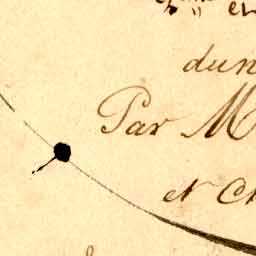 dun
Par M
et Ch